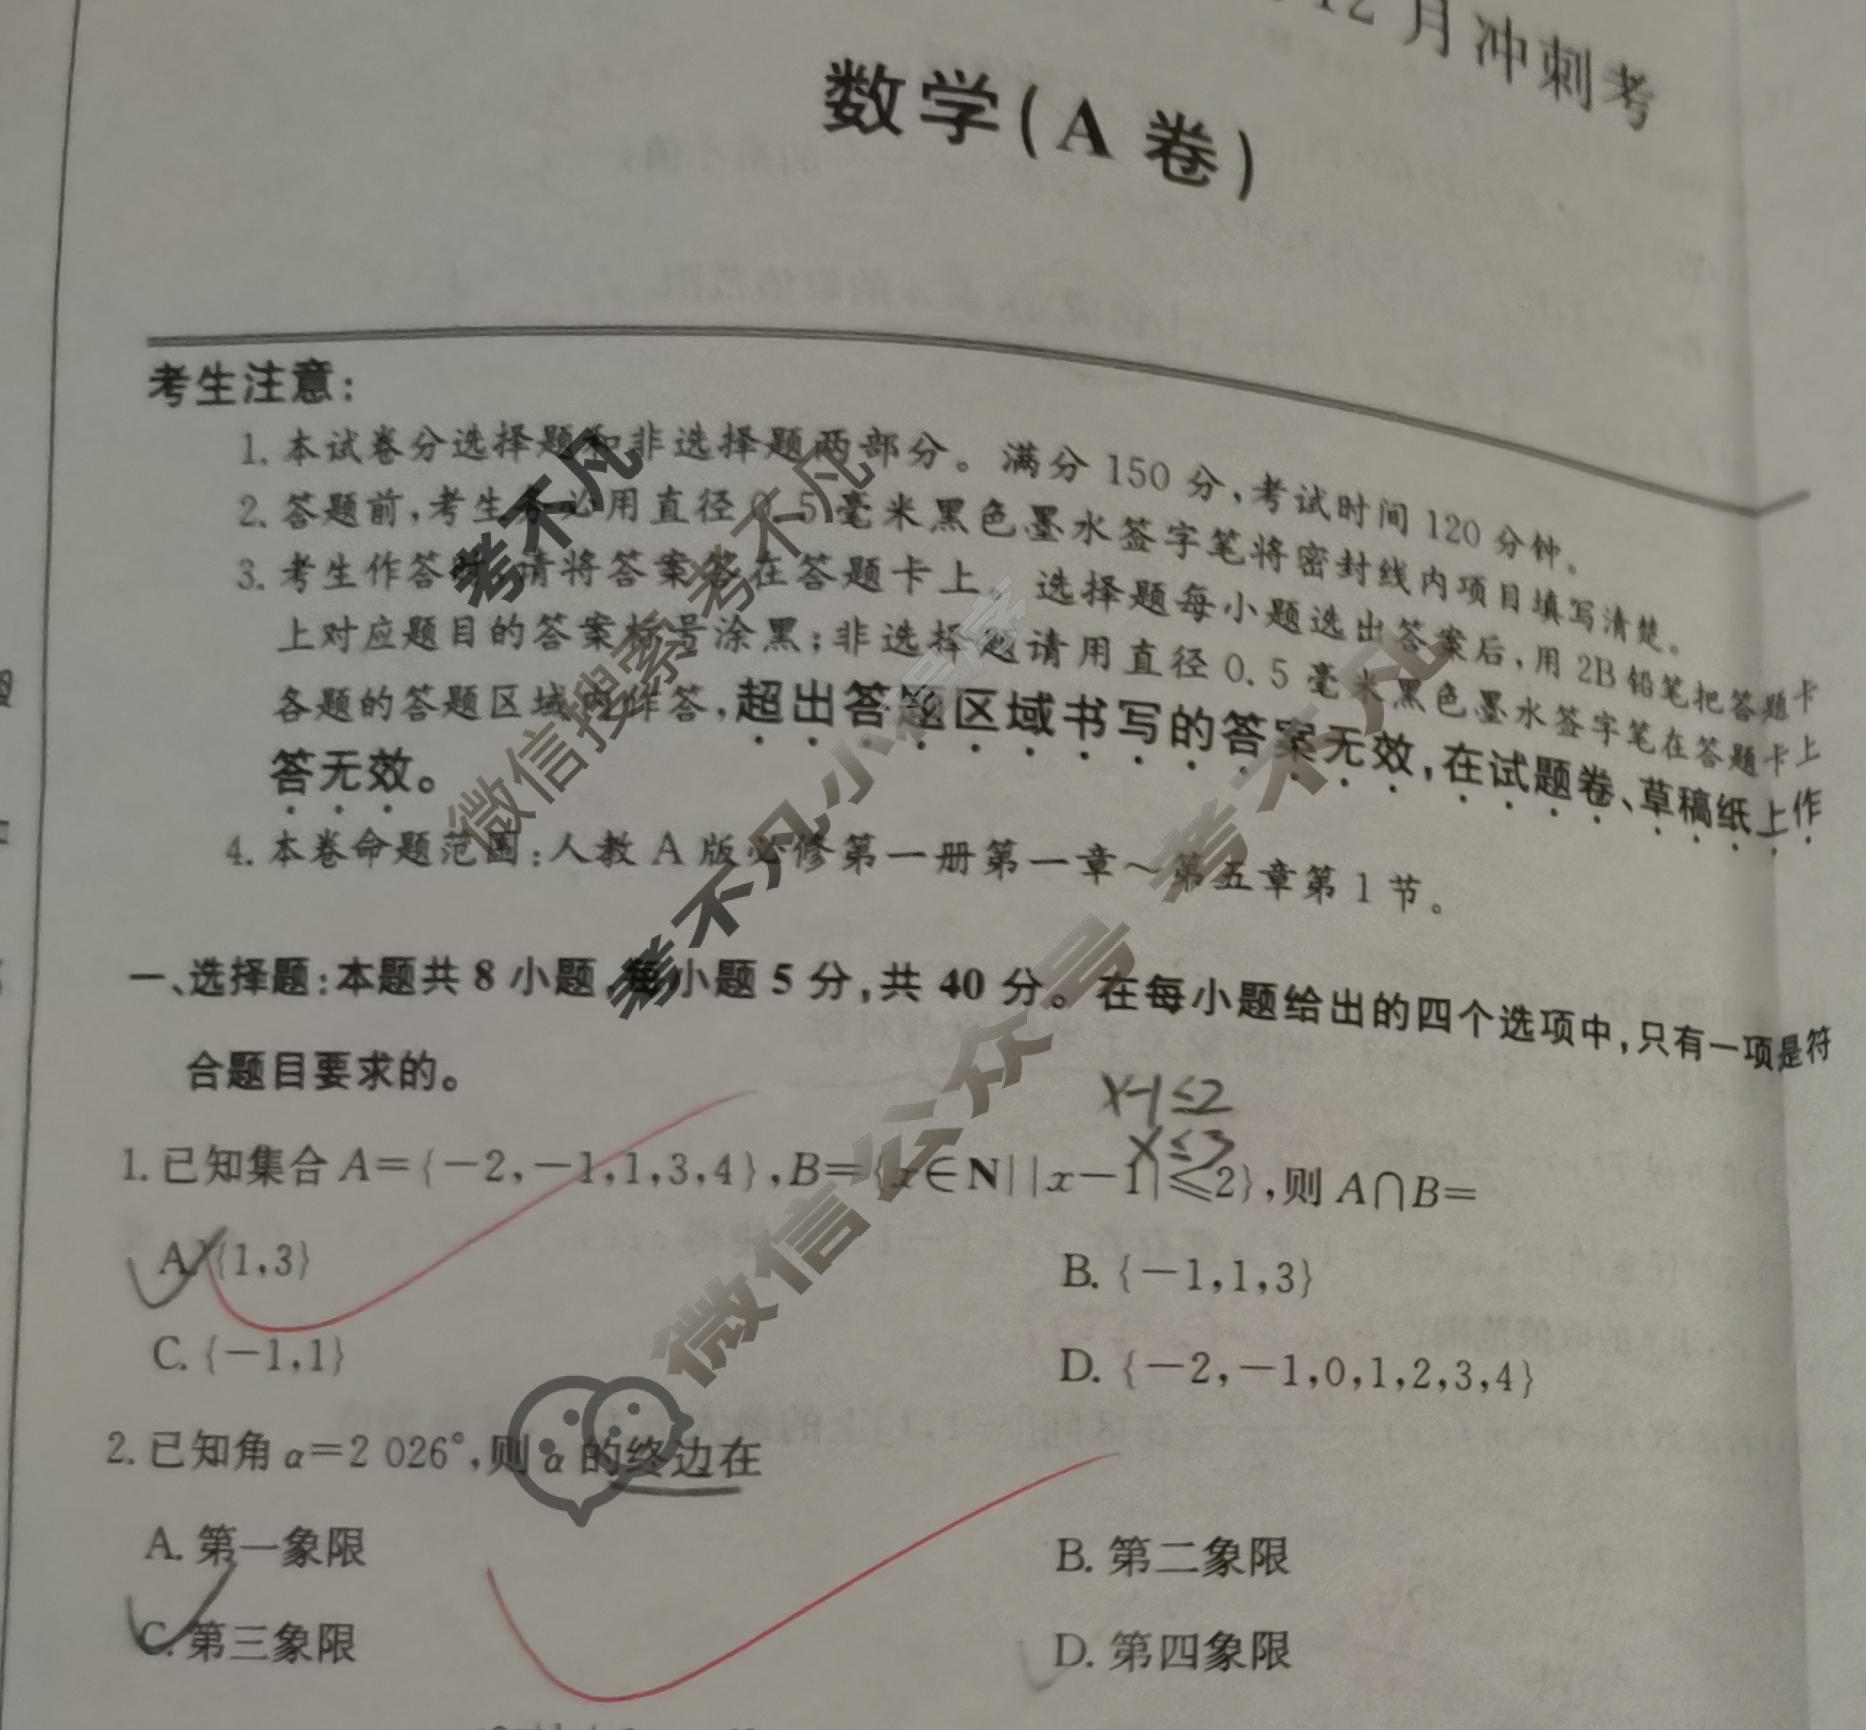 12月冲刺考
数学(A 卷)
考生注意:
1. 本试卷分选择题和非选择题两部分。满分 150 分,考试时间 120 分钟。
2. 答题前,考生务必用直径 0.5 毫米黑色墨水签字笔将密封线内项目填写清楚。
3. 考生作答时,请将答案答在答题卡上。选择题每小题选出答案后,用 2B 铅笔把答题卡
上对应题目的答案标号涂黑;非选择题请用直径 0.5 毫米黑色墨水签字笔在答题卡上
各题的答题区域内作答,超出答题区域书写的答案无效,在试题卷、草稿纸上作
答无效。
4. 本卷命题范围:人教 A 版必修第一册第一章~第五章第 1 节。
一、选择题:本题共 8 小题,每小题 5 分,共 40 分。在每小题给出的四个选项中,只有一项是符
合题目要求的。
x-1≤2
x≤3
1. 已知集合 A={-2,-1,1,3,4},B={x∈N||x-1|≤2},则 A∩B=
A. {1,3}
B. {-1,1,3}
C. {-1,1}
D. {-2,-1,0,1,2,3,4}
2. 已知角 α=2 026°,则 α 的终边在
A. 第一象限
B. 第二象限
C. 第三象限
D. 第四象限
考不凡
微信搜索 考不凡
考不凡小程序
微信公众号 考不凡